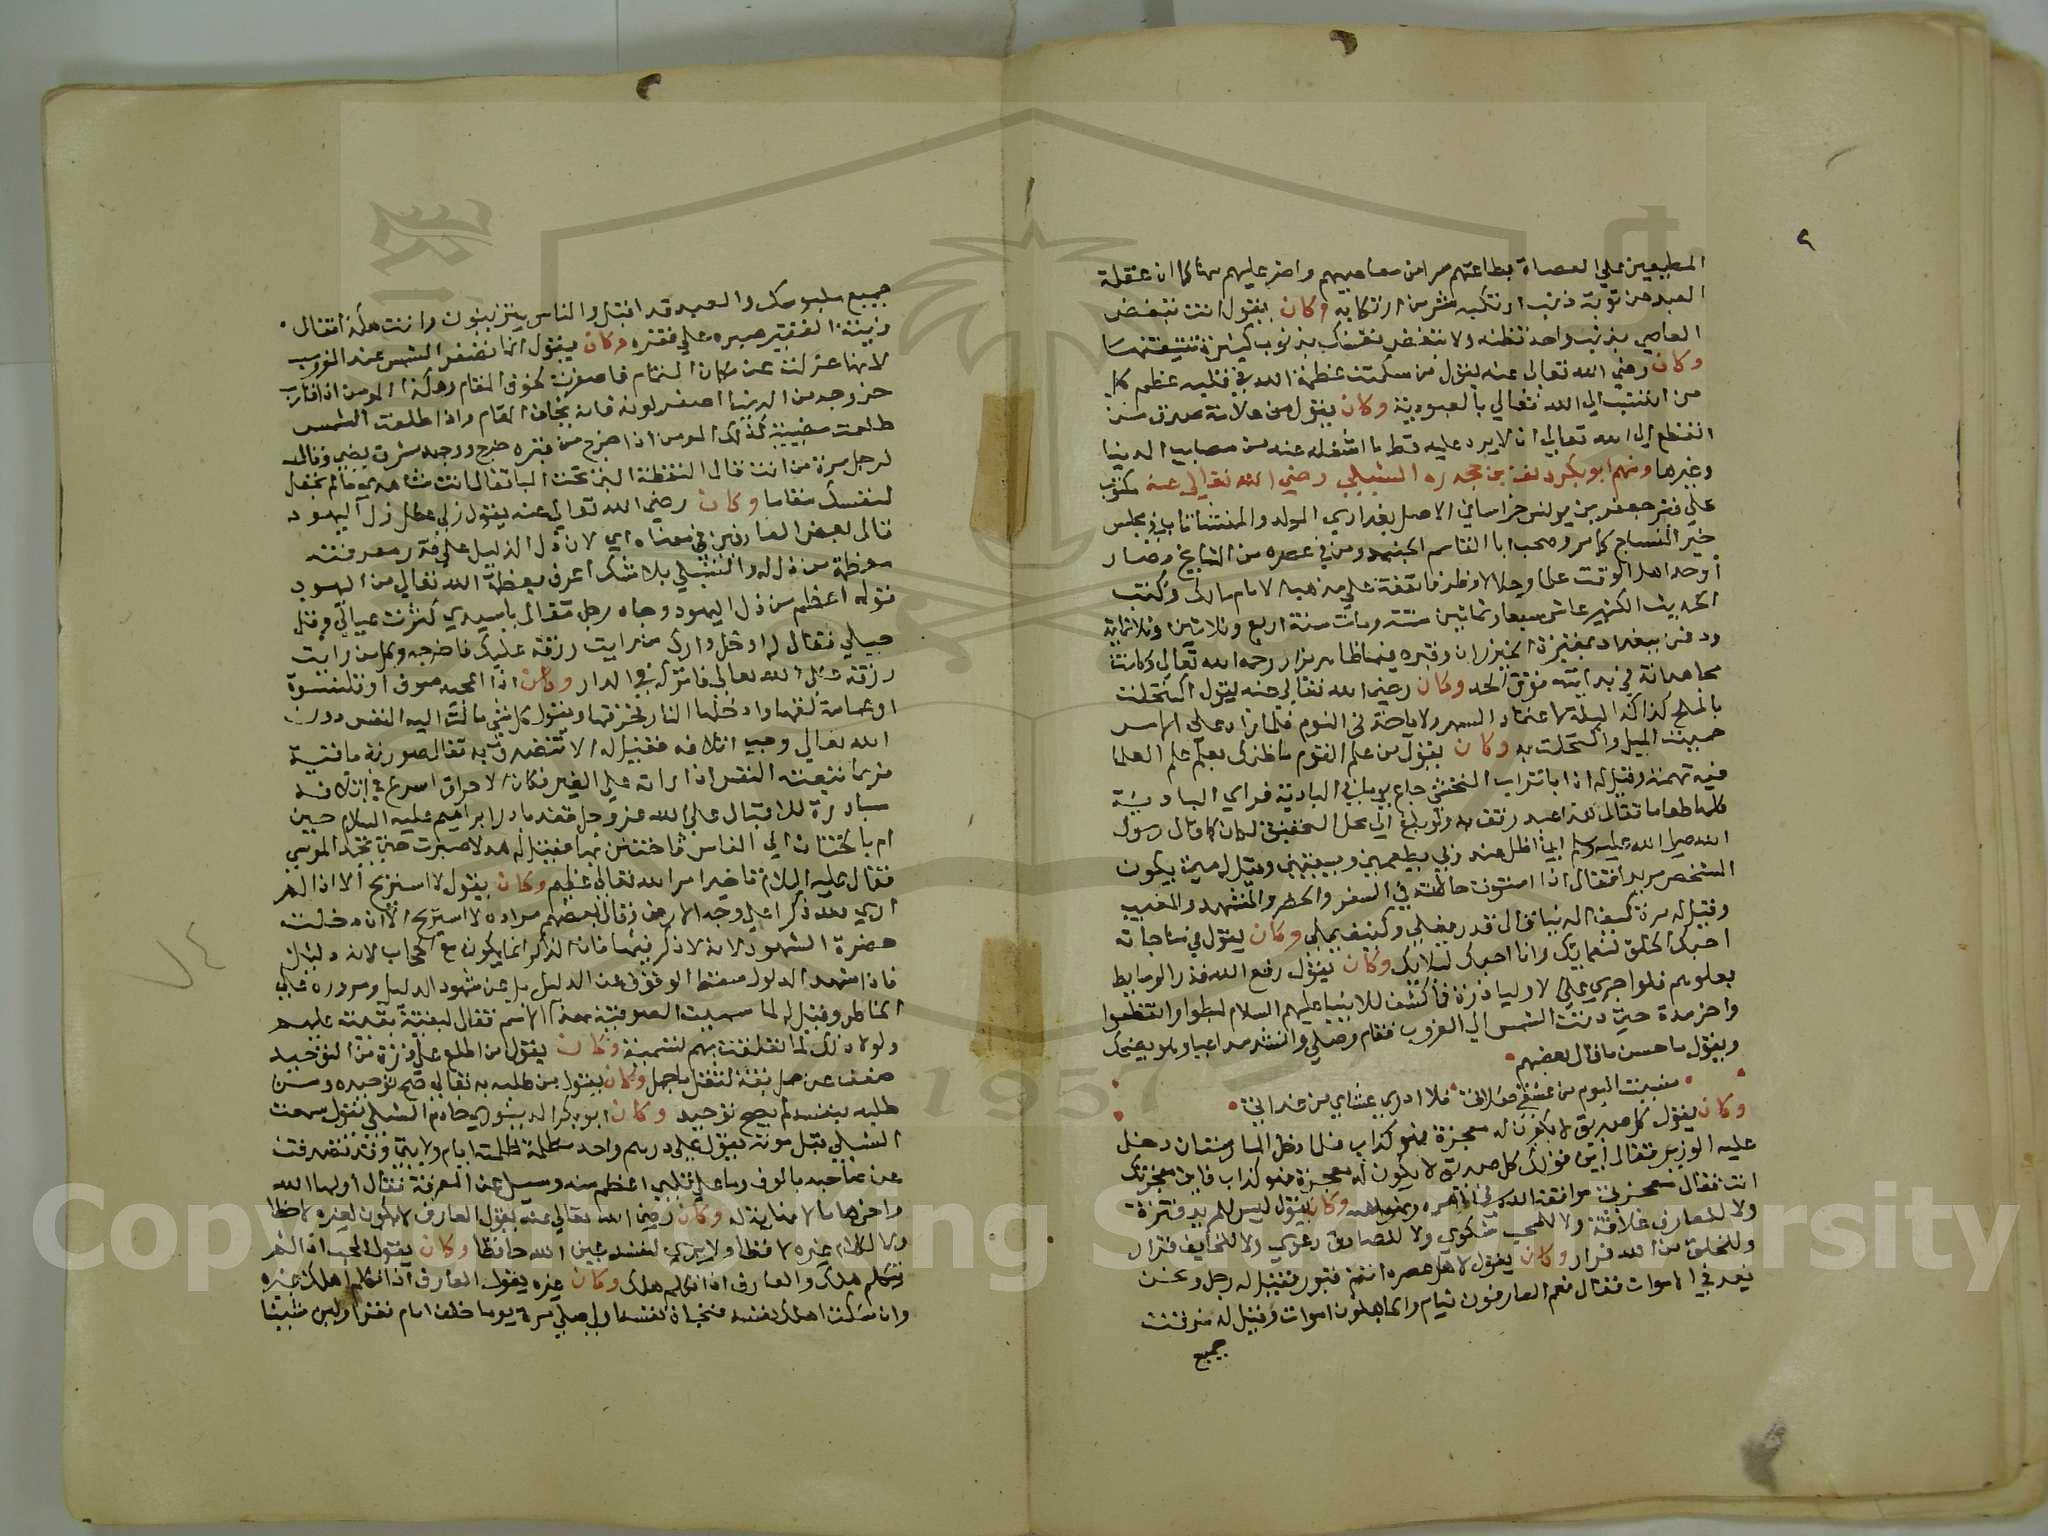 ٩
المطيعين علي العصاة بطاعتهم من معاصيهم واضر عليهم منها كما ان غفلة
العبد عن توبة ذنب ارتكبه شر من ارتكابه وكان يقول انت تبغض
العاصي بذنب واحد تظنه ولا تبغض نفسك بذنوب كثيرة تتيقنها
وكان رضي الله تعالي عنه يقول من سكنت عظمة الله في قلبه عظم كل
من انتسب الي الله تعالي بالعبودية وكان يقول من علامة صدق من
انقطع الي الله تعالي ان لا يرد عليه قط ما اشغله عنه من مصايب الدنيا
وغيرها ومنهم ابو بكر دلف بن جحدره الشبلي رضي الله تعالي عنه مكتوب
علي قبره جعفر بن يونس خراساني الاصل بغدادي المولد والمنشا تاب في مجلس
خير النساج كما مر وصحب ابا القاسم الجنيد ومن في عصره من المشايخ وصار
اوحد اهل الوقت علما وحالا وظرفا تفقه علي مذهب الامام مالك وكتب
الحديث الكثير عاش سبعا وثمانين سنة ومات سنة اربع وثلاثين وثلاثماية
ودفن ببغداد بمقبرة الخيزران وقبره فيها ظاهر يزار رحمه الله تعالي وكانت
مجاهداته في بدايته فوق الحد وكان رضي الله تعالي عنه يقول اكتحلت
بالملح كذا كذا ليلة لاعتاد السهر ولا ياخذني النوم فلما زاد علي الامر
حميت الميل واكتحلت به وكان يقول من علم القوم ما ظنك بعلم علم العلما
فيه تهمة وقيل له ان ابا تراب النخشبي جاع يوما في البادية فراي البادية
كلها طعاما فقال هذا عبد رفق به ولو بلغ الي محل التحقيق لكان كما قال رسول
الله صلي الله عليه وسلم اني اظل عند ربي يطعمني ويسقيني وقيل له متي يكون
الشخص مريدا فقال اذا استوت حالاته في السفر والحضر والمشهد والمغيب
وقيل له مرة كيف الدنيا فقال قدر يغلي وكنيف يملي وكان يقول في مناجاته
احبك الخلق لنعمايك وانا احبك لبلايك وكان يقول رفع الله قدر الوسايط
بعلوهم فلو اجري علي الاوليا ذرة مما كشف للانبيا عليهم السلام لبطلوا وانقطعوا
واخر مدة حتي دنت الشمس الي الغروب فقام وصلي وانشد مداعبا وهو يضحك
ويقول ما احسن ما قال بعضهم
نسيت اليوم من عشقي صلاتي فلا ادري عشاي من غداتي
وكان يقول كل صديق لا يكون له معجزة فهو كذاب فلما دخل المارستان دخل
عليه الوزير فقال اين قولك كل صديق لا يكون له معجزة فهو كذاب فاين معجزتك
انت فقال معجزتي موافقة الله في اوامره ونواهيه وكان يقول ليس للمريد فترة
ولا للعارف علاقة ولا للمحب شكوي ولا للصادق دعوي ولا للخايف قرار
وللخلق من الله فرار وكان يقول لاهل عصره انتم قبور فقيل له رجل ونحن
نعد في الاموات فقال نعم العارفون نيام والجاهلون اموات وقيل له مزقت
جميع
جميع ملبوسك والعيد قد اقبل والناس يتزينون وانت هكذا فقال
زينة الفقير صبره علي فقره وكان يقول انما تصفر الشمس عند الغروب
لانها عزلت عن مكان التمام فاصفرت لخوف المقام وهكذا المومن اذا قارب
خروجه من الدنيا اصفر لونه فانه يخاف المقام واذا طلعت الشمس
طلعت مضيية كذلك المومن اذا خرج من قبره خرج ووجهه مشرق يضي وقال
لرجل مرة من انت قال النقطة التي تحت البا فقال انت شاهدي ما لم تجعل
لنفسك مقاما وكان رضي الله تعالي عنه يقول ذلي عطل ذل اليهود
قال بعض العارفين في معناه اي لان ذل الذليل علي قدر معرفته
بعظمة من ذل له والشبلي بلا شك اعرف بعظمة الله تعالي من اليهود
فذله اعظم من ذل اليهود وجاه رجل فقال يا سيدي كثرت عيالي وقلت
حيلي فقال له ادخل دارك فمن رايت رزقه عليك فاخرجه وكل من رايت
رزقه علي الله تعالي فاتركه في الدار وكان اذا اعجبه صوف او قلنسوة
او عمامة لفها وادخلها النار يحرقها ويقول كل شي مالت اليه النفس دون
الله تعالي وجب اتلافه فقيل له الا تتصدق به فقال صورته باقية
فربما تتبعته النفس اذا راته علي الغير فكان الاحراق اسرع في اتلافه
مبادرة للاقبال علي الله عز وجل فقد بادر ابراهيم عليه السلام حين
امر بالختان الي الفاس فاختتن بها فقيل له هلا صبرت حتي تجد الموسي
فقال عليه السلام تاخير امر الله تعالي عظيم وكان يقول لا استريح الا اذا لم
اري لله ذاكرا علي وجه الارض وقال بعضهم مراده لا استريح الا ان دخلت
حضرة الشهود لانه لا ذكر فيها فان الذكر انما يكون مع الحجاب لانه دليل
فاذا شهد المدلول سقط الوقوف عن الدليل بل عن شهود الدليل ومروره علي
الخاطر وقيل له لما سميت الصوفية بهذا الاسم فقال لبقية بقيت عليهم
ولولا ذلك لما تعلقت بهم تسمية وكان يقول من اطلع علي ذرة من التوحيد
ضعف عن حمل بقة لثقل ما حمل وكان يقول من طلبه به تعالي صح توحيده ومن
طلبه بنفسه لم يصح توحيد وكان ابو بكر الدينوري خادم الشبلي يقول سمعت
الشبلي قبل موته يقول علي درهم واحد مظلمة ظلمته ايام ولايتي وقد تصدقت
عن صاحبه بالوف وما علي قلبي اعظم منه وسيل عن المعرفة فقال اولها الله
واخرها ما لا نهاية له وكان رضي الله تعالي عنه يقول العارف لا يكون لغيره لاحظا
ولا لكلام غيره لافظا ولا يري لنفسه غير الله حافظا وكان يقول المحب اذا لم
يتكلم هلك والعارف اذا تكلم هلك وكان غيره يقول العارف اذا تكلم اهلك غيره
وان سكت اهلك نفسه فنجاة نفسه اولي وصلي مرة يوما خلف امام فقرا ولين شيئا
Copyright © King Saud University
1957